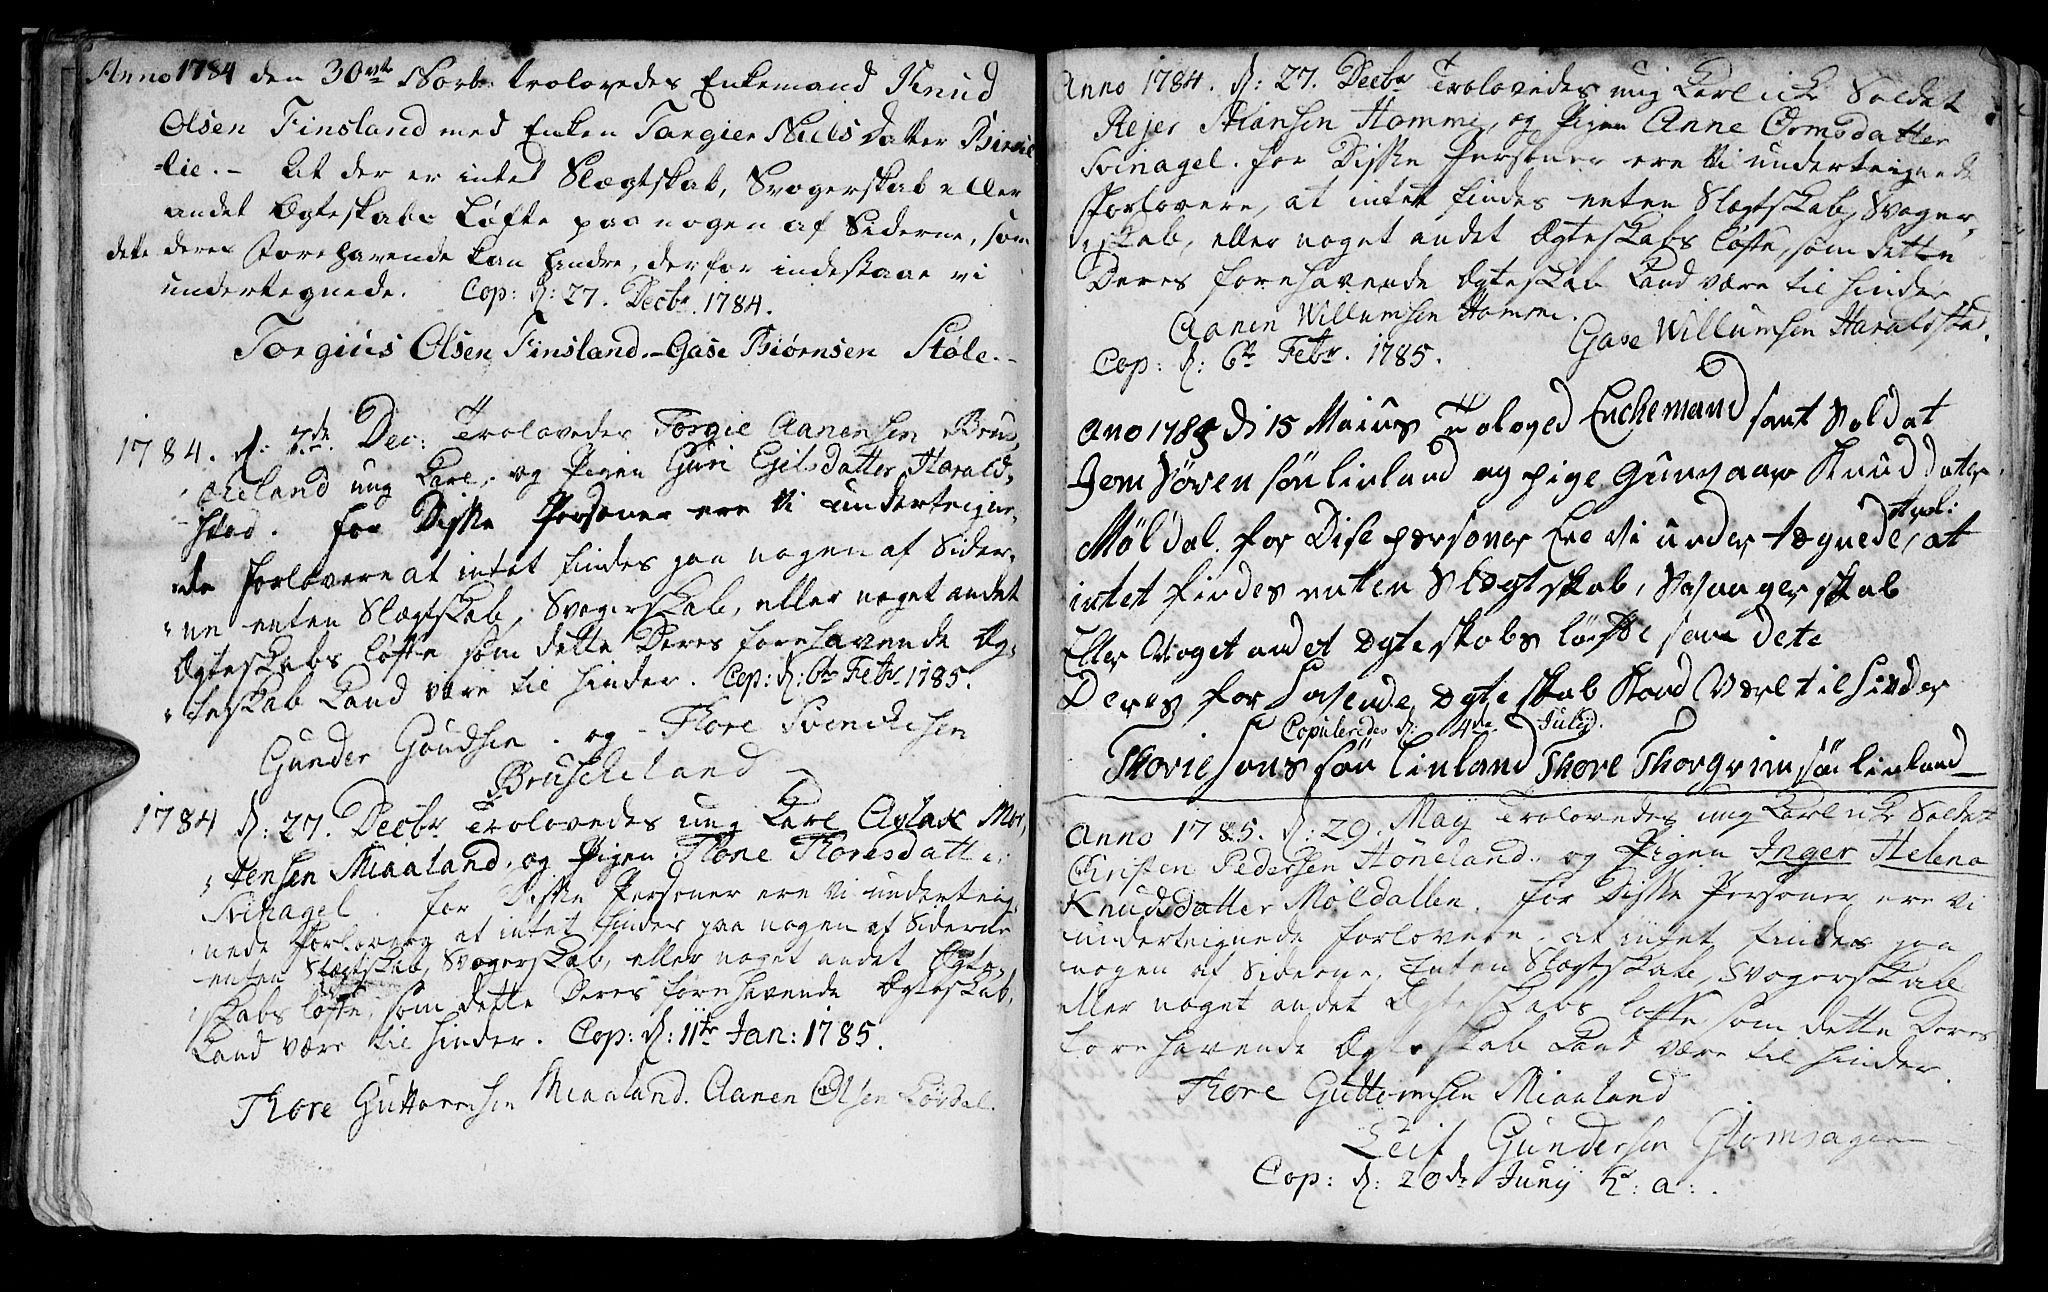 Anno 1784 den 30te Novb: trolovedes Enkemand Knud
Olsen Finsland med Enken Torgier Niels Datter
lie. - At der er intet Slægtskab, Svogerskab eller
andet Ægteskabs Løfte paa nogen af Siderne, som
dette deres Forehavende kan hindre, derfor indestaae vi
undertegnede. Cop: d: 27. Decbr. 1784.
Torgius Olsen Finsland. - Gase Biørnsen Støle. -
1784. d: 7de Dec: Trolovedes Torgie Aanensen Brus,
keland ung Karl, og Pigen Guri Egilsdatter Harald,
stad. For Disse Personer ere Vi underteigne,
de Forlovere at intet findes paa nogen af Sider,
ne enten Slægtskab, Svogerskab, eller noget andet
Ægteskabs løfte som dette Deres forehavende Æg,
teskab Kand være til hinder. Cop: d: 6te Febr. 1785.
Gunder Goudsen. og - Thore Svenckesen
Bruskeland
1784 d: 27. Decbr Trolovedes ung Karl Aslak Mor,
tensen Miaaland, og Pigen Thone Thoresdatter
Svinagel for Disse Personer ere vi underteig,
nede Forlovere at intet findes paa nogen af Siderne
enten Slægtskab, Svogerskab, eller noget andet Ægte,
skabs løfte, som dette Deres forehavende Ægteskab,
Kand være til hinder. Cop: d: 11te Jan: 1785.
Thore Guttormsen Miaaland. Aanen Olsen Lørdal.
Anno 1784. d: 27. Decbr Trolovedes ung Karl Soldat
Rejer Stiansen Homme, og Pigen Anne Ormsdatter
Svinagel. For Disse Personer ere Vi underteignede
Forlovere, at intet findes enten Slægtskab, Svoger,
skab, eller noget andet Ægteskabs løfte, som dette
Deres forehavende Ægteskab Kand være til hinder.
Aanen Willumsen Homme. Gase Willumsen Haraldstad.
Cop: d: 6te Febr. 1785.
Ano 1785 d 15 Maius Troloved Enchemand samt Soldat
Jom Søren søn linland og pige Gunvaar Knud dater
Møldal. for Dise personer Ere Vi under tægnede, at
intet findes enten Slegtskab, Svaager skab
Eller Noget andet Ægteskabs løfte som Dete
Deres for havende Ægteskab Kand Være til hinder
Copuleredes d: 4de Julij.
Thorie Jons søn linland Thore Thorgrim søn linland
Anno 1785. d: 29. Maij Trolovedes ung Karl Soldat
Christen Pedersen Høneland. og Pigen Inger Helena
Knudsdatter Møldallen. For Disse Personer ere vi
underteignede Forlovere at intet findes paa
nogen af Siderne, Enten Slægtskab, Svogerskab
eller noget andet Ægteskabs løfte, som dette Deres
forehavende Ægteskab Kand være til hinder.
Thore Guttormsen Miaaland
Leif Gundersen Glomsager
Cop: d: 20de Junij h: a:.